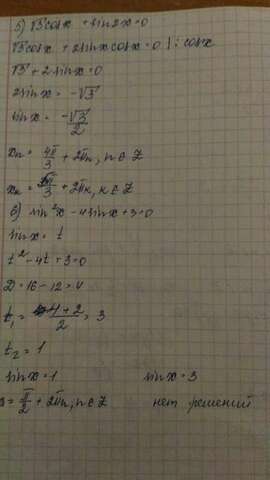 5) √3cosx + sin2x=0
√3cosx + 2sinxcosx=0 | : cosx
√3 + 2sinx=0
2sinx = -√3
sinx = -√3/2
xₙ = 4π/3 + 2πn, n∈Z
xₖ = 5π/3 + 2πк, к∈Z
6) sin²x - 4sinx + 3=0
sinx = t
t² - 4t + 3=0
D = 16 - 12 = 4
t₁ = 4+2/2 = 3
t₂ = 1
sinx = 1 sinx = 3
= π/2 + 2πn, n∈Z нет решений